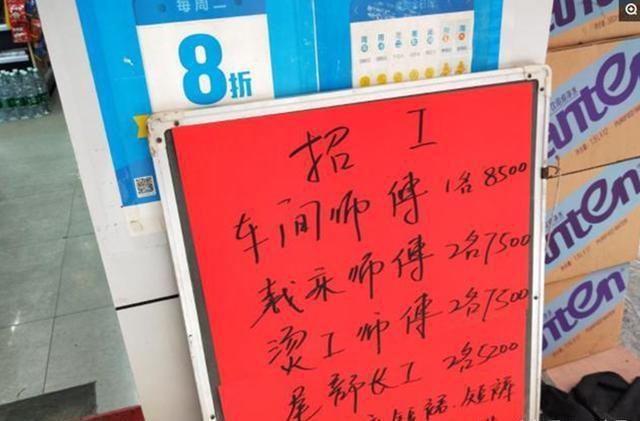 每周二
8折
招 工
车间师傅 1名8500
裁床师傅 2名7500
烫工师傅 2名7500
尾部长工 2名5200
短裙.短裤
anten
anten